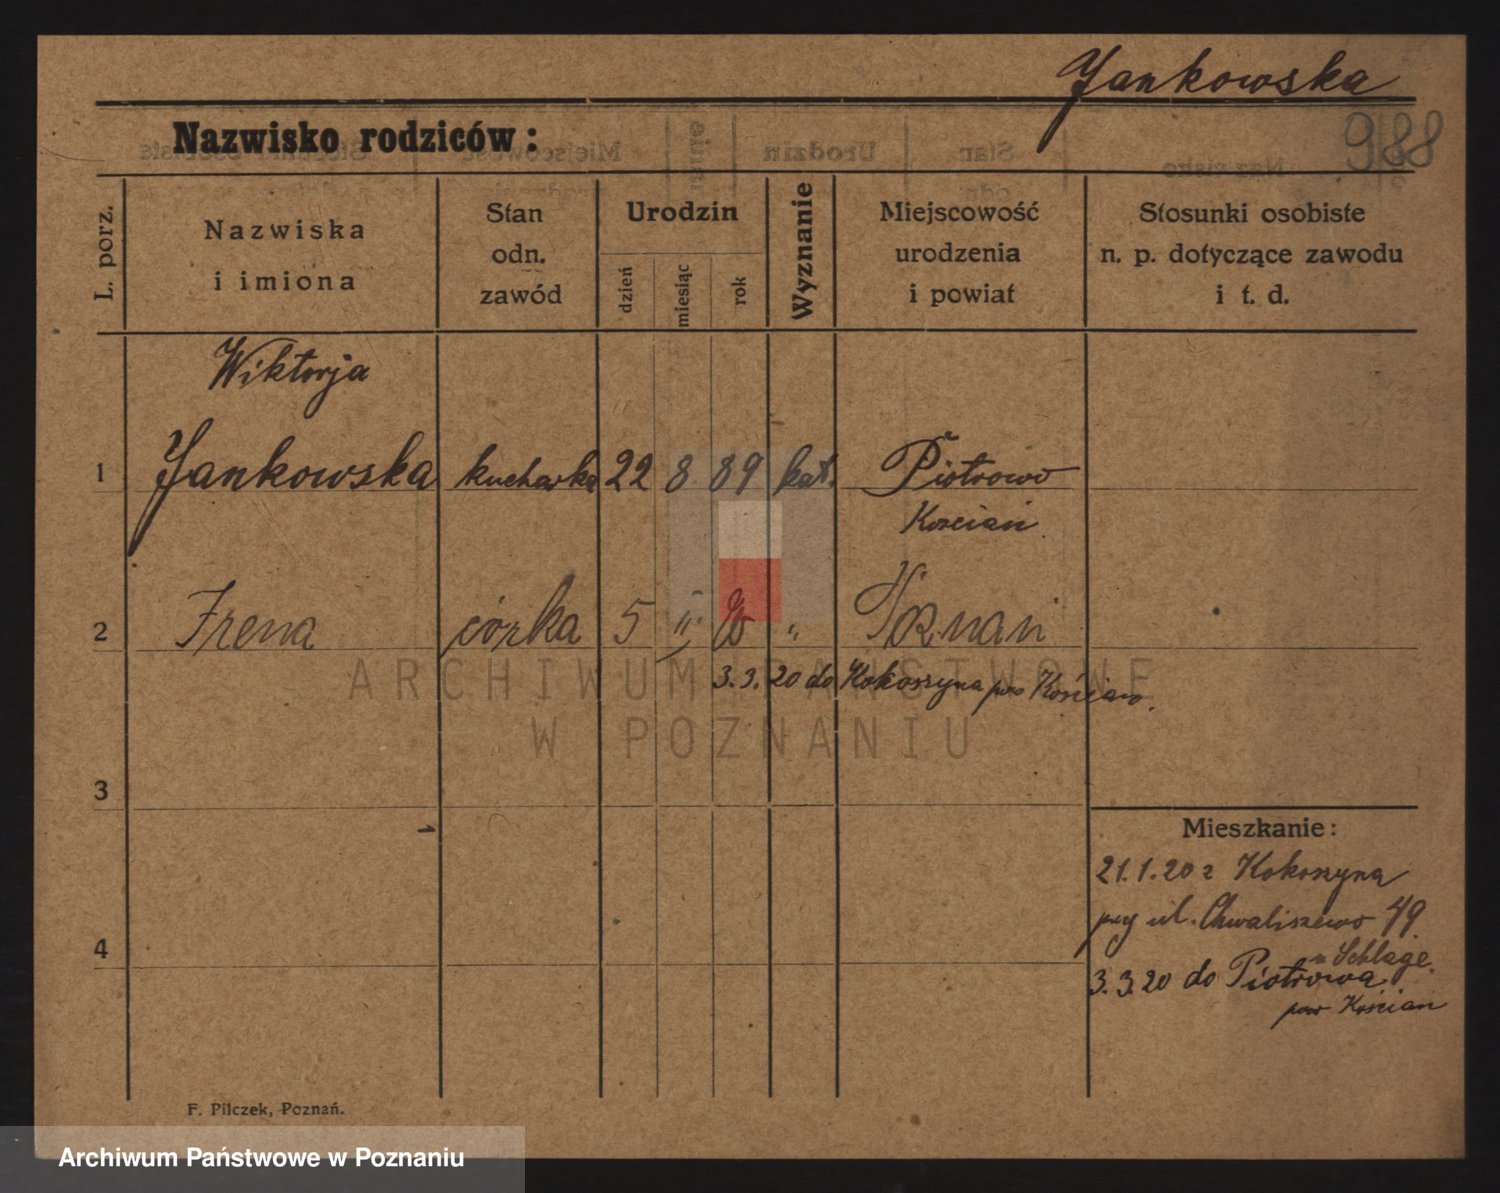 Jankowska
Nazwisko rodziców:
988
L. porz.
Nazwiska
i imiona
Stan
odn.
zawód
Urodzin
dzień
miesiąc
rok
Wyznanie
Miejscowość
urodzenia
i powiat
Stosunki osobiste
n. p. dotyczące zawodu
i t. d.
Wiktorja
1 Jankowska kucharka 22 8 89 kat. Piotrowo
Kościań
2 Irena córka 5 II 20 " Poznań
3.3.20 do Kokoszyna pow Kościan.
ARCHIWUM PAŃSTWOWE
W POZNANIU
3
Mieszkanie:
21.1.20 z Kokoszyna
przy ul. Chwaliszewo 49
u Schlage.
4
3.3.20 do Piotrowa
pow Kościan
F. Pilczek, Poznań.
Archiwum Państwowe w Poznaniu